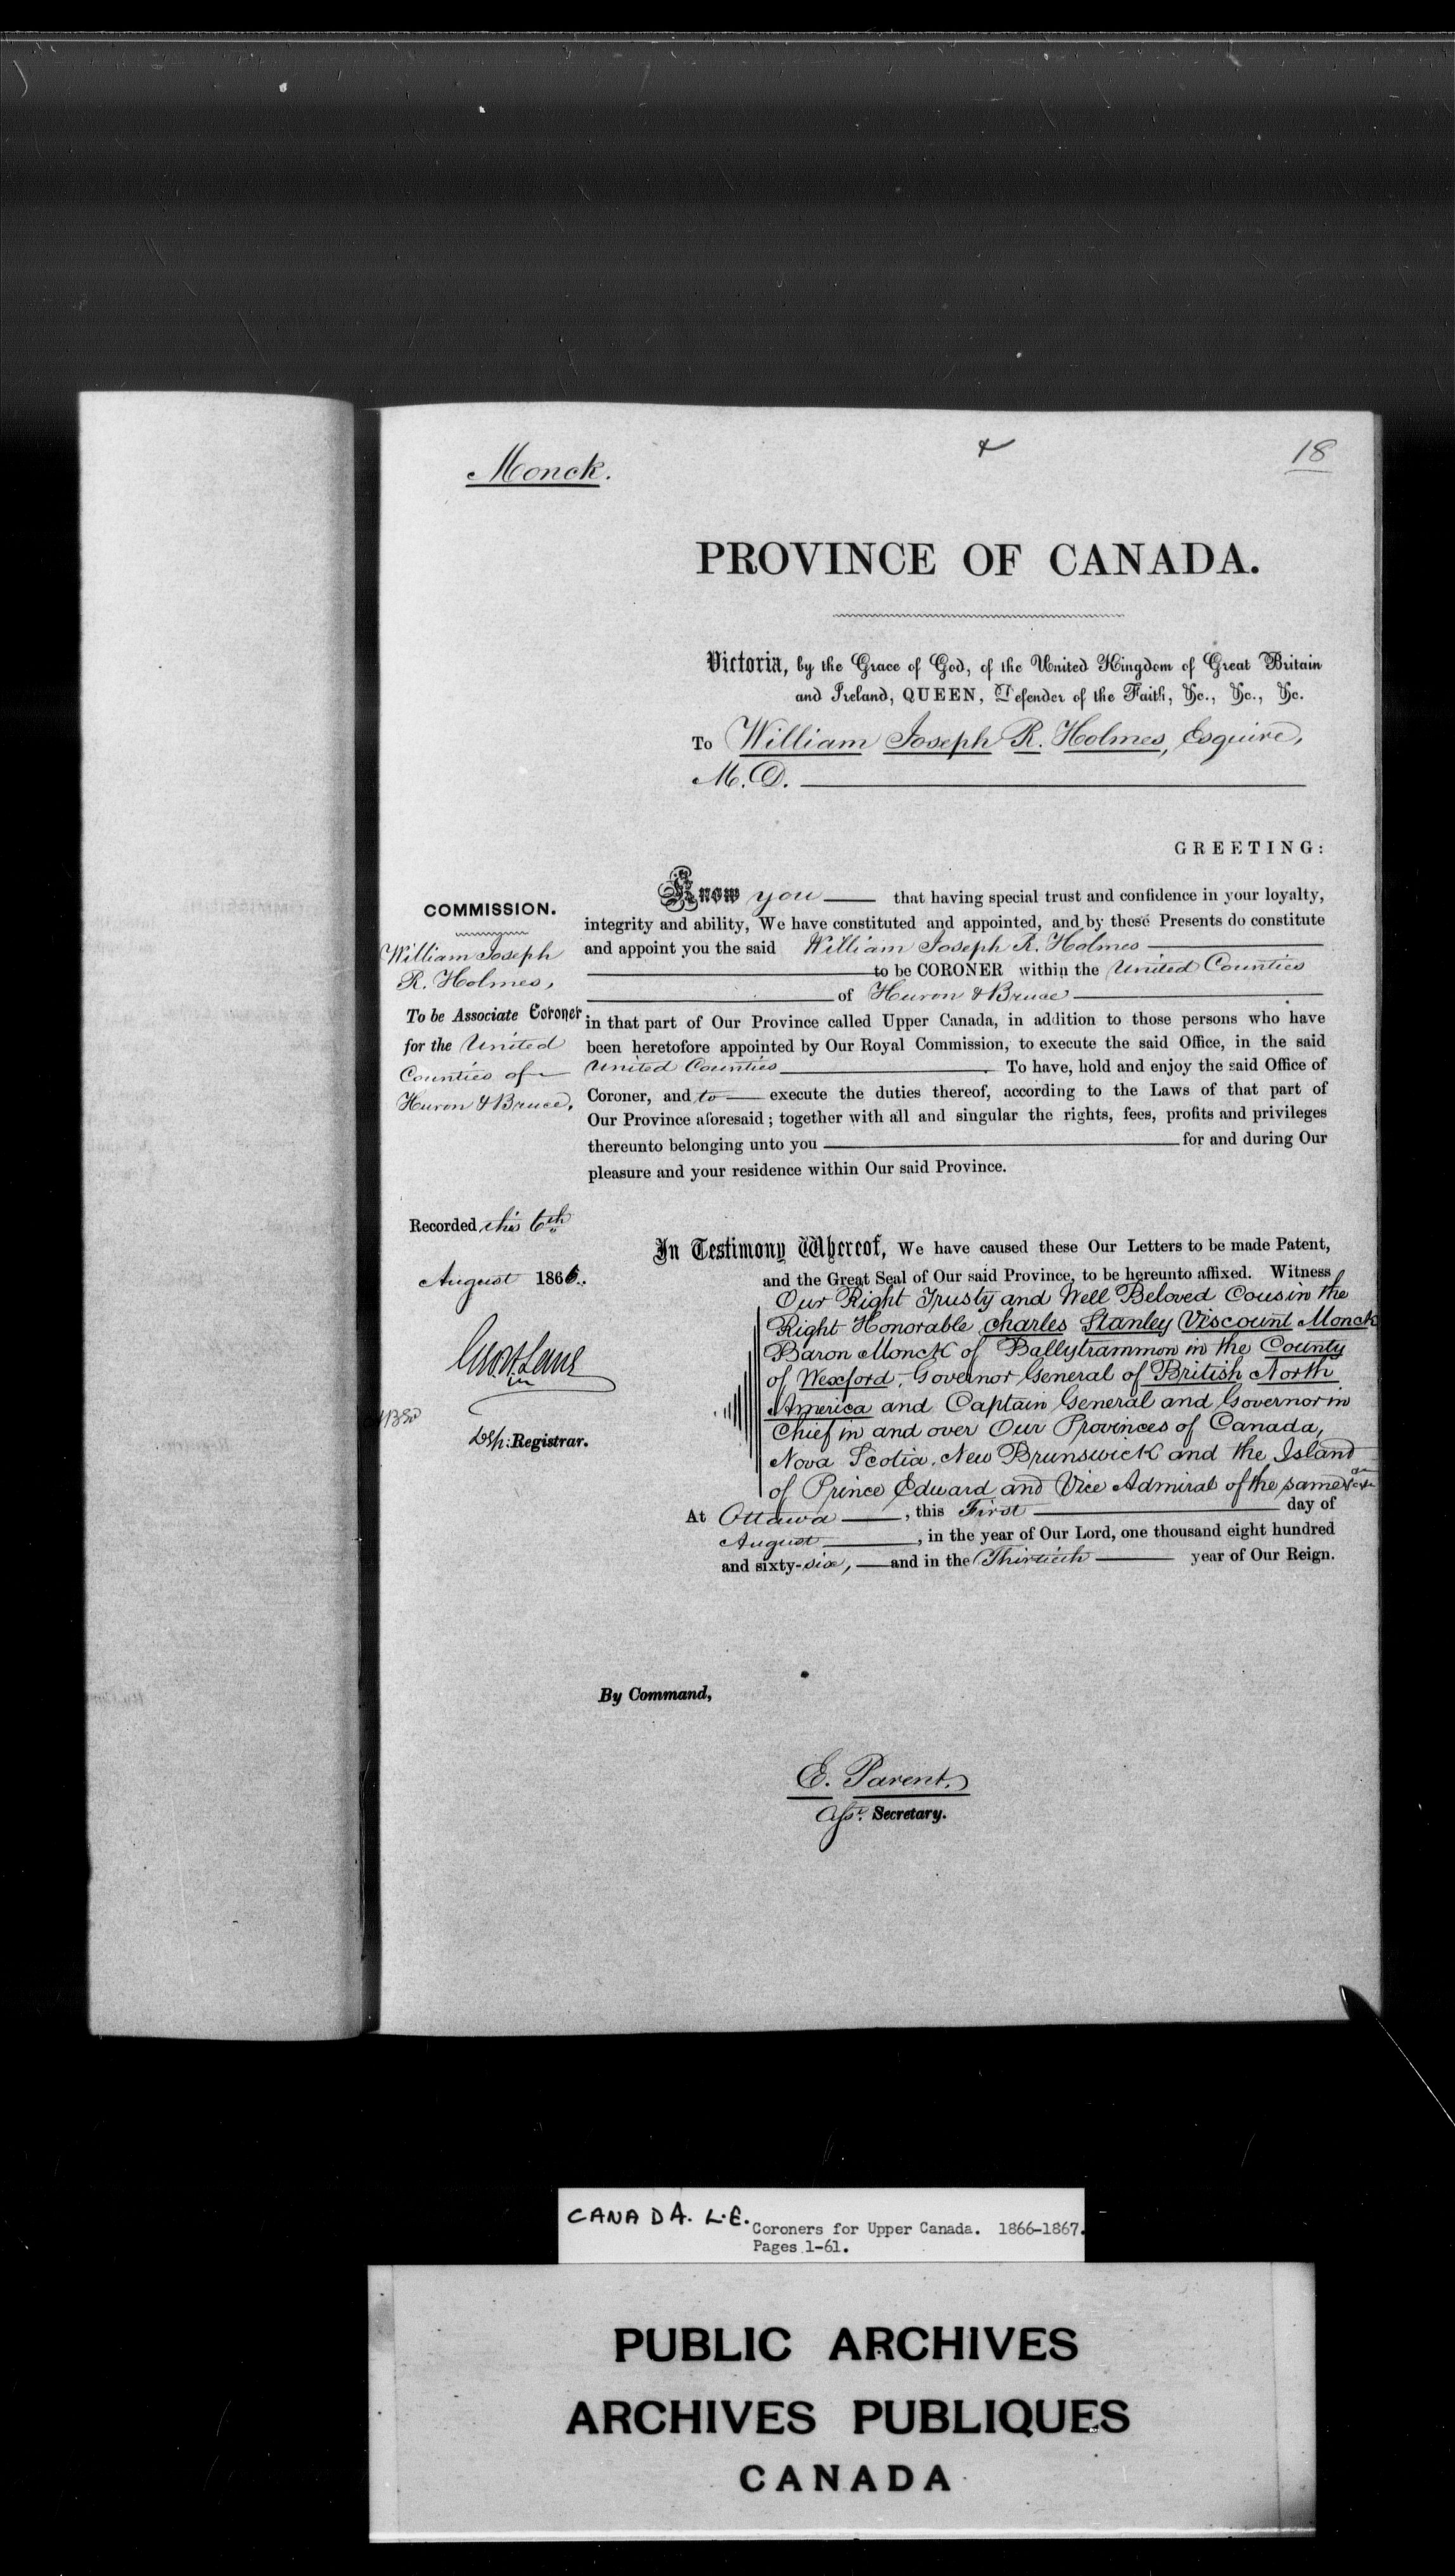 Monck.
18
PROVINCE OF CANADA.
Victoria, by the Grace of God, of the United Kingdom of Great Britain
and Ireland, QUEEN, Defender of the Faith, &c., &c., &c.
To William Joseph R. Holmes, Esquire,
M.D.
GREETING:
Know you that having special trust and confidence in your loyalty,
integrity and ability, We have constituted and appointed, and by these Presents do constitute
and appoint you the said William Joseph R. Holmes
to be CORONER within the United Counties
of Huron & Bruce
in that part of Our Province called Upper Canada, in addition to those persons who have
been heretofore appointed by Our Royal Commission, to execute the said Office, in the said
United Counties To have, hold and enjoy the said Office of
Coroner, and to execute the duties thereof, according to the Laws of that part of
Our Province aforesaid; together with all and singular the rights, fees, profits and privileges
thereunto belonging unto you for and during Our
pleasure and your residence within Our said Province.
COMMISSION.
William Joseph
R. Holmes,
To be Associate Coroner
for the United
Counties of
Huron & Bruce.
Recorded this 6th
August 1866.
Dep: Registrar.
In Testimony Whereof, We have caused these Our Letters to be made Patent,
and the Great Seal of Our said Province, to be hereunto affixed. Witness
Our Right Trusty and Well Beloved Cousin the
Right Honorable Charles Stanley Viscount Monck
Baron Monck of Ballytrammon in the County
of Wexford, Governor General of British North
America and Captain General and Governor in
Chief in and over Our Provinces of Canada,
Nova Scotia, New Brunswick and the Island
of Prince Edward and Vice Admiral of the same
At Ottawa, this First day of
August, in the year of Our Lord, one thousand eight hundred
and sixty-six, and in the Thirtieth year of Our Reign.
By Command,
E. Parent,
Asst. Secretary.
CANADA. L.E.
Coroners for Upper Canada. 1866-1867.
Pages 1-61.
PUBLIC ARCHIVES
ARCHIVES PUBLIQUES
CANADA